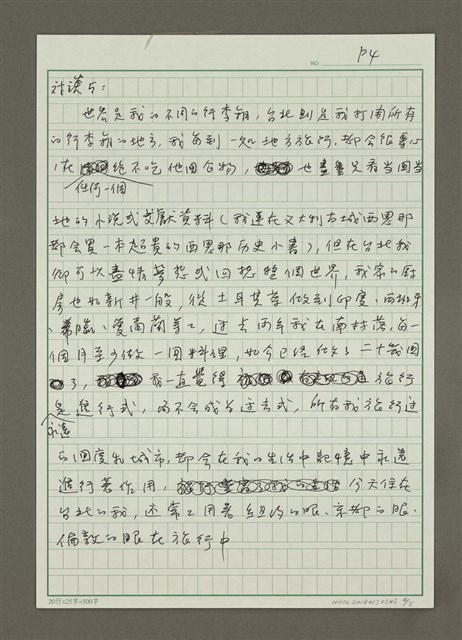 NO.
P4
韓漢5:
世界是我的不同的行李箱,台北則是我打開所有
的行李箱的地方,我每到一处地方旅行,都会很專心
在 絕不吃他国食物, 也盡量只看当国当
任何一個
地的小說或文獻資料(我連在义大利古城西恩那
都会買一本超貴的西恩那历史小書),但在台北我
卻可以盡情夢想或回想整個世界,我家的厨
房也如新井一般,從土耳其菜做到印度、西班牙
、希臘、愛爾蘭菜,过去两年我在南村落每一
個月至少做一回料理,如今已経做了二十幾回
了, 我一直覺得 旅行
是進行式,而不会成為过去式,所有我旅行过
永遠
的国度和城市,都会在我的生活中記憶中永遠
進行著作用, 今天住在
台北的我,还常之用著紐約的眼、京都的眼、
倫敦的眼在旅行中
20行×25字=500字